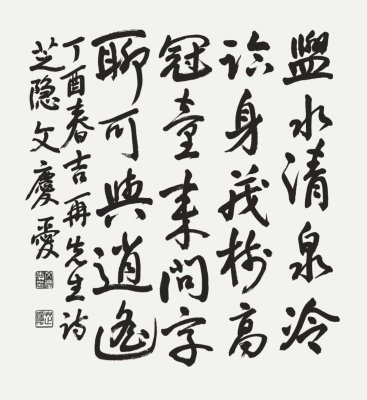 盥水清泉冷
身茂树高
冠童来問字
聊可與逍遙
丁酉春吉再先生诗
芝隐文慶愛